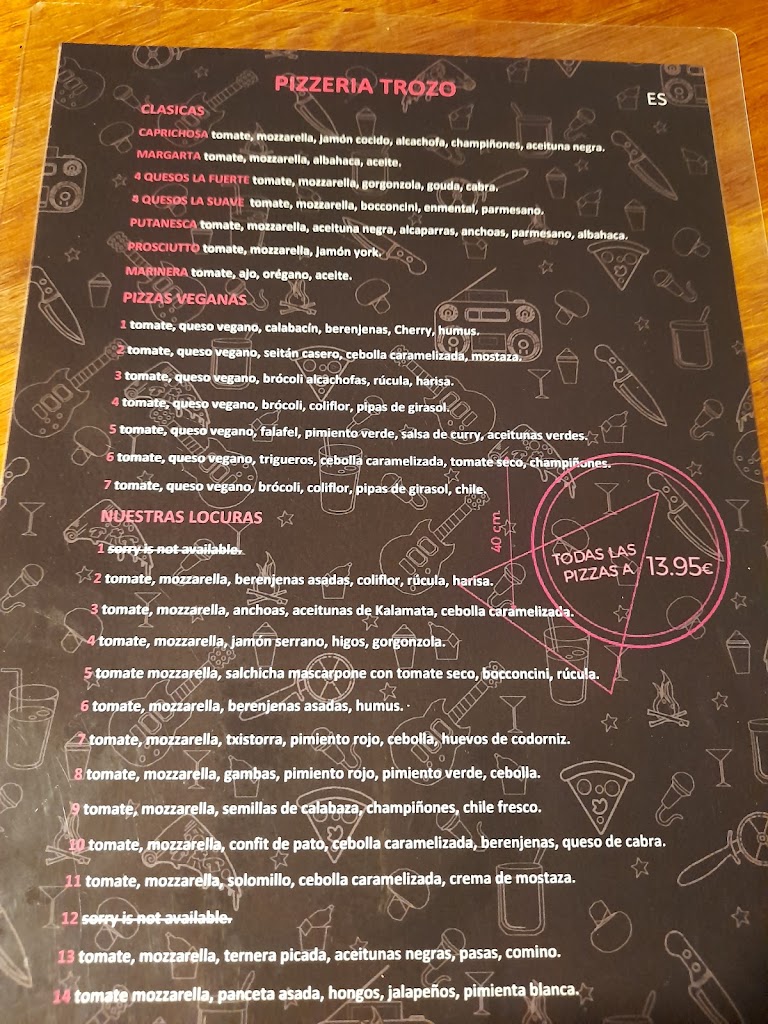 PIZZERIA TROZO
ES
CLASICAS
CAPRICHOSA tomate, mozzarella, jamón cocido, alcachofa, champiñones, aceituna negra.
MARGARTA tomate, mozzarella, albahaca, aceite.
4 QUESOS LA FUERTE tomate, mozzarella, gorgonzola, gouda, cabra.
4 QUESOS LA SUAVE tomate, mozzarella, bocconcini, enmental, parmesano.
PUTANESCA tomate, mozzarella, aceituna negra, alcaparras, anchoas, parmesano, albahaca.
PROSCIUTTO tomate, mozzarella, jamón york.
MARINERA tomate, ajo, orégano, aceite.
PIZZAS VEGANAS
1 tomate, queso vegano, calabacín, berenjenas, Cherry, humus.
2 tomate, queso vegano, seitán casero, cebolla caramelizada, mostaza.
3 tomate, queso vegano, brócoli alcachofas, rúcula, harisa.
4 tomate, queso vegano, brócoli, coliflor, pipas de girasol.
5 tomate, queso vegano, falafel, pimiento verde, salsa de curry, aceitunas verdes.
6 tomate, queso vegano, trigueros, cebolla caramelizada, tomate seco, champiñones.
7 tomate, queso vegano, brócoli, coliflor, pipas de girasol, chile.
NUESTRAS LOCURAS
40 cm
TODAS LAS
PIZZAS A 13.95€
1 sorry is not available.
2 tomate, mozzarella, berenjenas asadas, coliflor, rúcula, harisa.
3 tomate, mozzarella, anchoas, aceitunas de Kalamata, cebolla caramelizada.
4 tomate, mozzarella, jamón serrano, higos, gorgonzola.
5 tomate mozzarella, salchicha mascarpone con tomate seco, bocconcini, rúcula.
6 tomate, mozzarella, berenjenas asadas, humus.
7 tomate, mozzarella, txistorra, pimiento rojo, cebolla, huevos de codorniz.
8 tomate, mozzarella, gambas, pimiento rojo, pimiento verde, cebolla.
9 tomate, mozzarella, semillas de calabaza, champiñones, chile fresco.
10 tomate, mozzarella, confit de pato, cebolla caramelizada, berenjenas, queso de cabra.
11 tomate, mozzarella, solomillo, cebolla caramelizada, crema de mostaza.
12 sorry is not available.
13 tomate, mozzarella, ternera picada, aceitunas negras, pasas, comino.
14 tomate mozzarella, panceta asada, hongos, jalapeños, pimienta blanca.